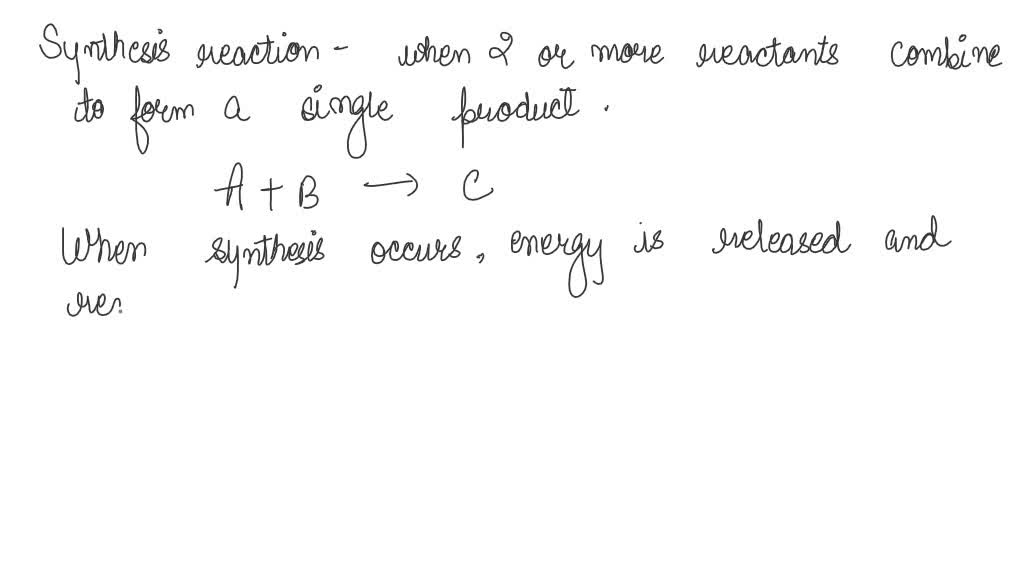 Synthesis reaction - when 2 or more reactants combine
to form a single product.
A + B → C
When synthesis occurs, energy is released and
rea